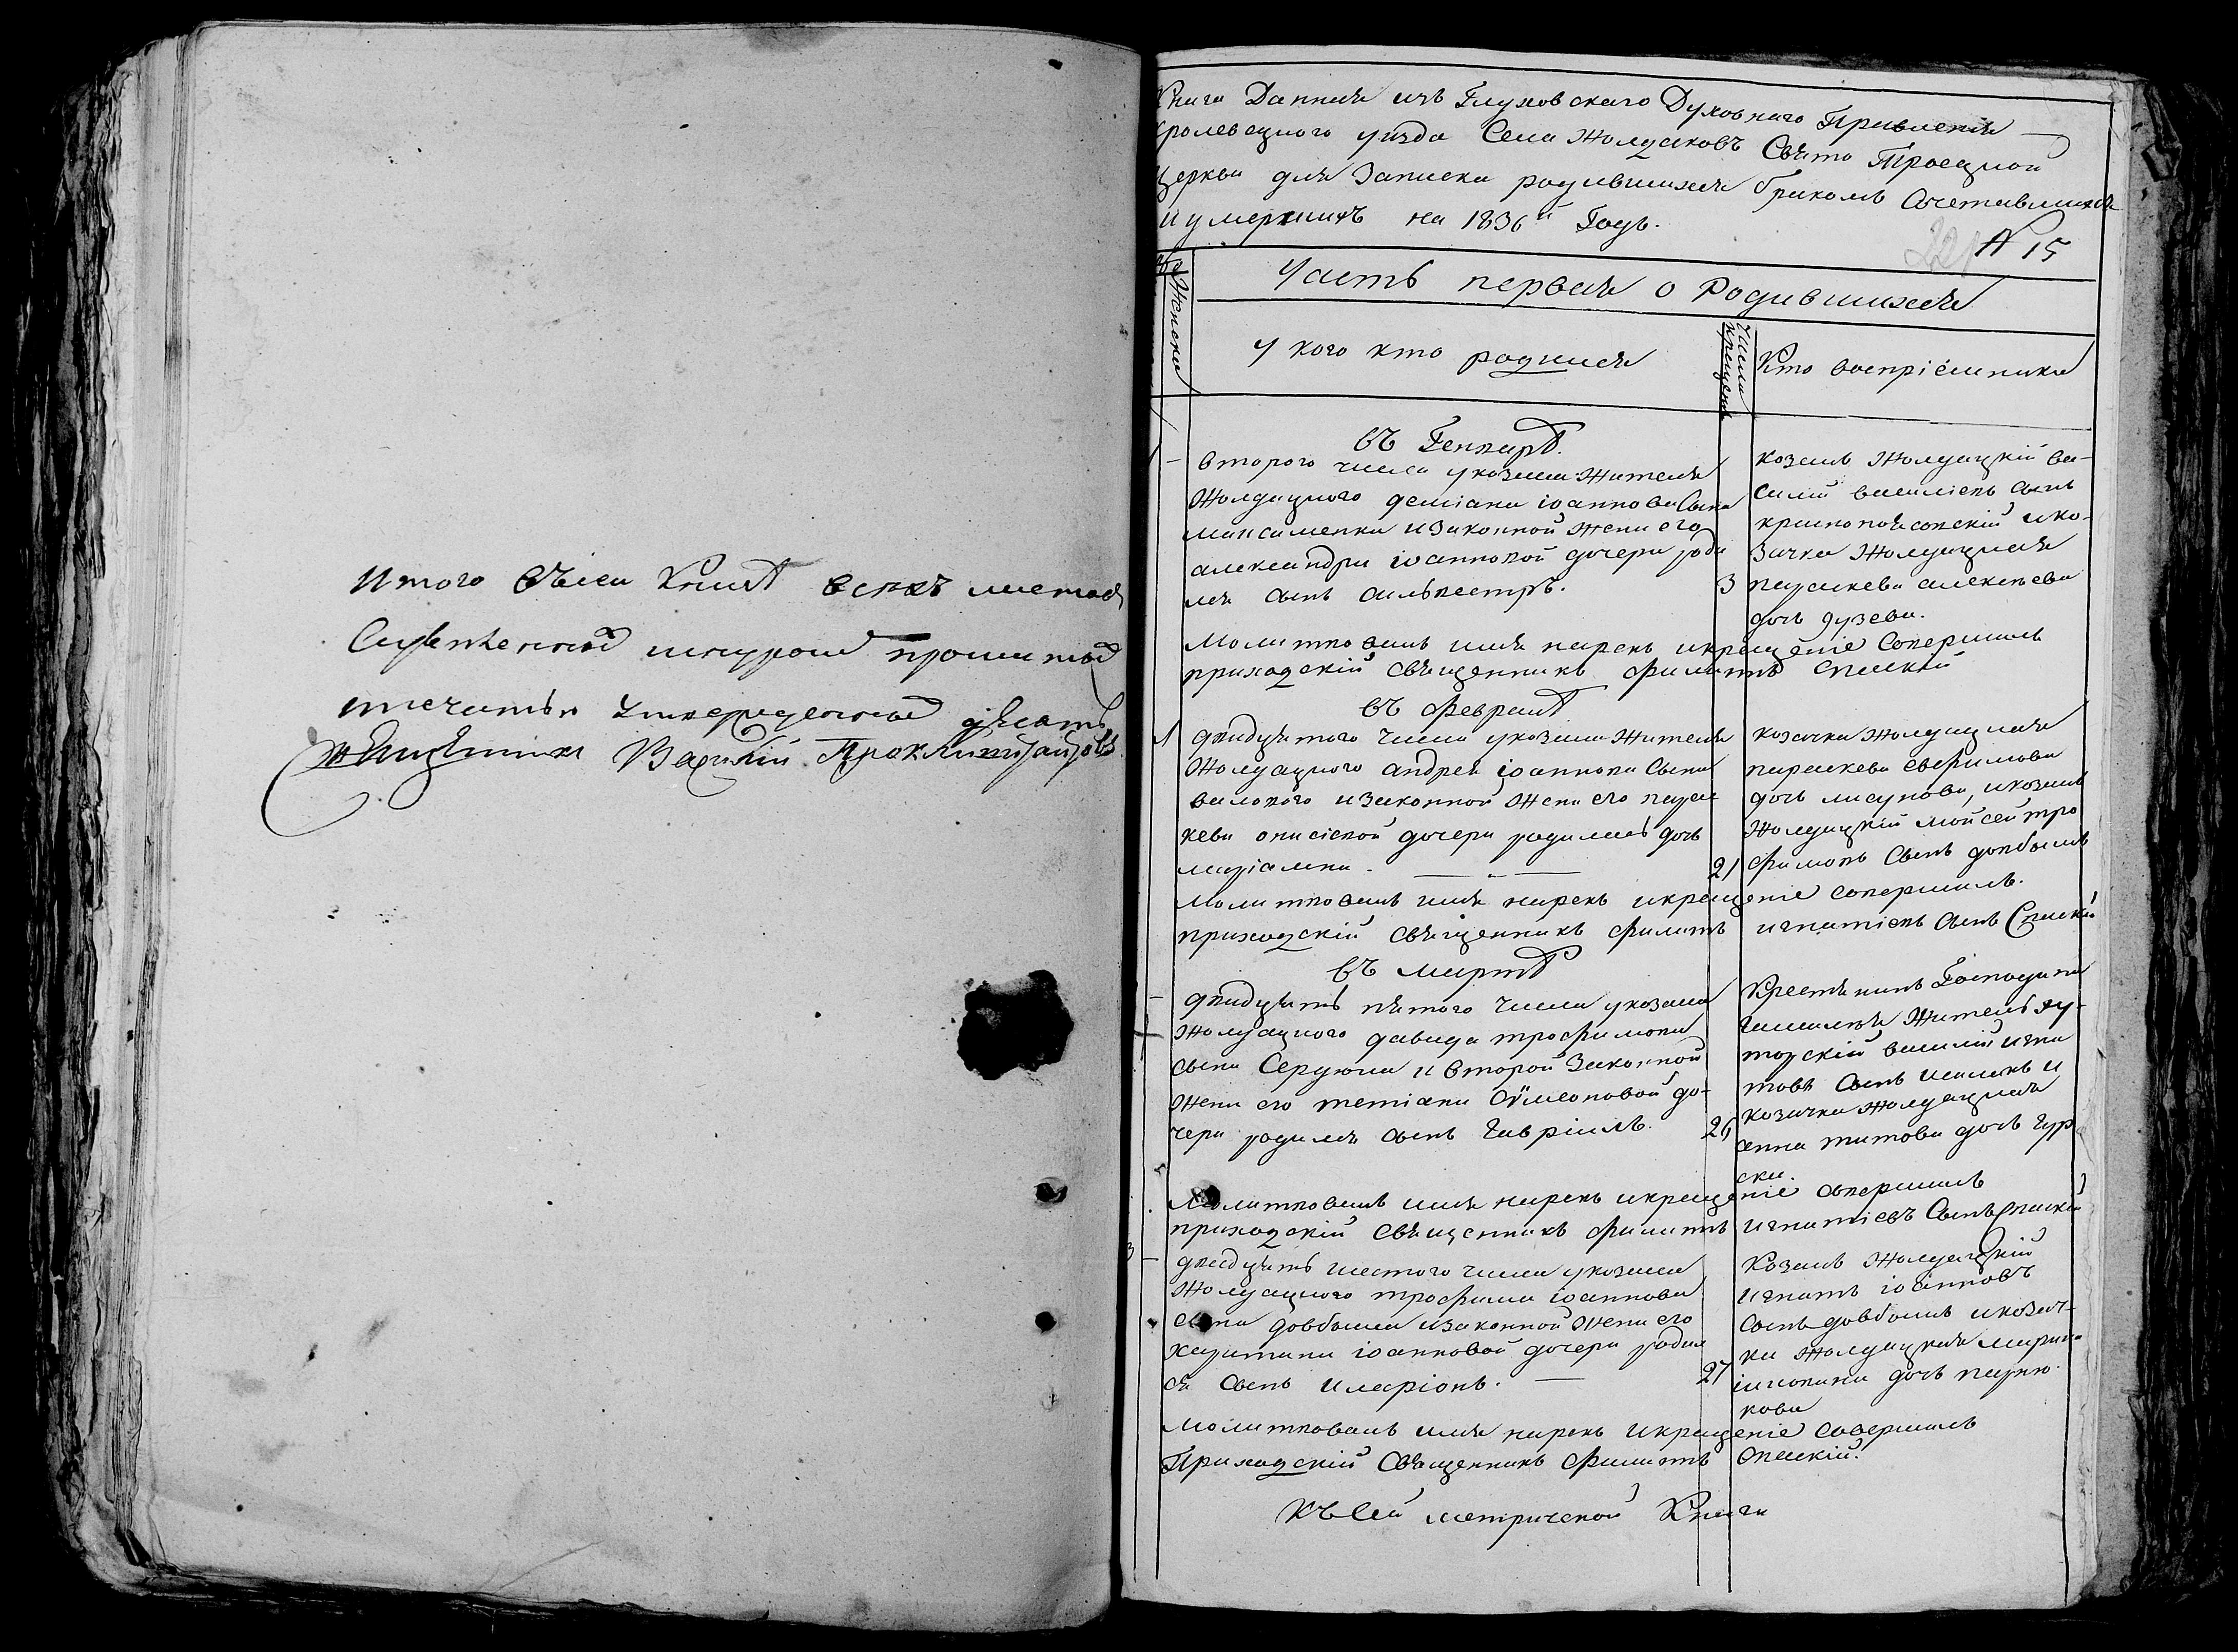 итого въ сей Книгѣ всѣхъ листовъ
Скрѣпленной шнуромъ прошитой
печатью утвержденной десять
Священникъ Василій
Книга Данная изъ Глуховскаго Духовнаго Правленія
кролевецкого уизда Села Жолдаковъ Свято Троецкой
Церкви для Записки родившихся браком Сочетавшихся
и умершихъ на 1836й Годъ.
N 15
Часть первая о Родившихся
Женска
У кого кто родился
Числа крещенія
Кто воспріемники
Въ Генварѣ.
1 –
второго числа указака Жителя
Жолдацкого деміана іоаннова Сына
максименка и законной жени его
александри іоанновой дочери роди
лся сынъ сильвестръ.
3
козакъ Жолдацкій ва-
силій василіевъ сынъ
краснопоясовскій и ко-
зачка Жолдацкая
параскева алексѣева
дочь дузева.
Молитвовалъ имя нарекъ и крещеніе Совершилъ
приходскій священникъ филипъ Спаскій
Въ Февралѣ
1
двидцятого числа укозака Жителя
Жолдацкого андрея іоаннова Сына
валового и законной жени его парас
кеви онисіевой дочери родилась дочь
маріамна.
21
козачка Жолдацкая
параскева ефимова
дочь лисунова, и козакъ
Жолдацкій мойсей тро
фимовъ Сынъ довбышъ
Молитвовалъ имя нарекъ и крещеніе совершилъ.
приходскій священникъ филипъ игнатіевъ сынъ Спаскій
Въ Мартѣ
–
двидцять пятого числа укозака
Жолдацкого давида трофимова
сына Сердюка и второй Законной
жени его татіани Сѵмеоновой до-
чери родился сынъ Гавріилъ.
26
Крестянинъ Господина
Жителъ ху-
торскій василій игна
товъ Сынъ и
козачка Жолдацкая
анна титова дочь гур
ска.
Молитвовалъ имя нарекъ и крещеніе совершилъ
приходскій священникъ филипъ игнатіевъ Сынъ Спаскій
3 –
двидцять шестого числа укозака
Жолдацкого трофима іоаннова
сына довбыша и законной жени его
харитини іоанновой дочери родил
ся Сынъ иларіонъ.
27
Козакъ Жолдацкій
игнатъ іоанновъ
Сынъ довбышъ и козач-
ка Жолдацкая марина
дочь пархо
кова
Молитвовалъ имя нарекъ и крещеніе совершилъ
Приходскій Священникъ Филипъ Спаскій.
Къ Сей метрической Книги